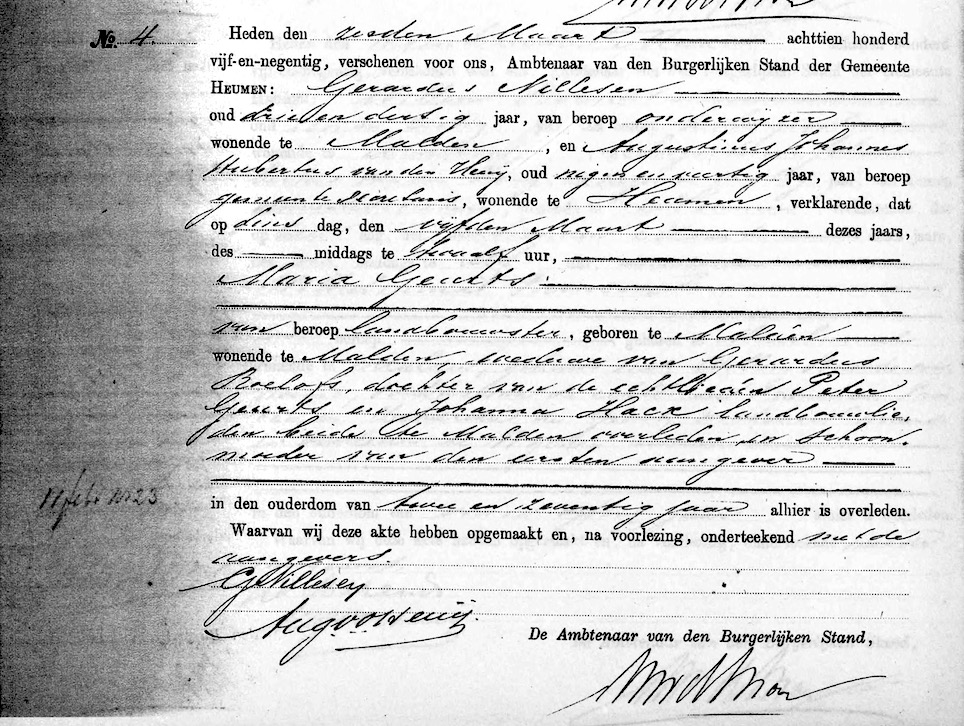 No. 4. Heden den zesden Maart achttien honderd
vijf-en-negentig, verschenen voor ons, Ambtenaar van den Burgerlijken Stand der Gemeente
HEUMEN: Gerardus Nillesen
oud drie en dertig jaar, van beroep onderwijzer
wonende te Malden, en Augustinus Johannes
Hubertus van den Heuij, oud negen en veertig jaar, van beroep
gemeente secretaris, wonende te Heumen, verklarende, dat
op dins dag, den vijfden Maart dezes jaars,
des middags te twaalf uur,
Maria Geurts
van beroep landbouwster, geboren te Malden
wonende te Malden, weduwe van Gerardus
Roelofs, dochter van de echtlieden Peter
Geurts en Johanna Hack landbouwlie,
den beide te Malden overleden, en schoon-
moeder van den eersten aangever
in den ouderdom van twee en zeventig jaar alhier is overleden.
Waarvan wij deze akte hebben opgemaakt en, na voorlezing, onderteekend met de
aangevers.
G Nillesen
De Ambtenaar van den Burgerlijken Stand,